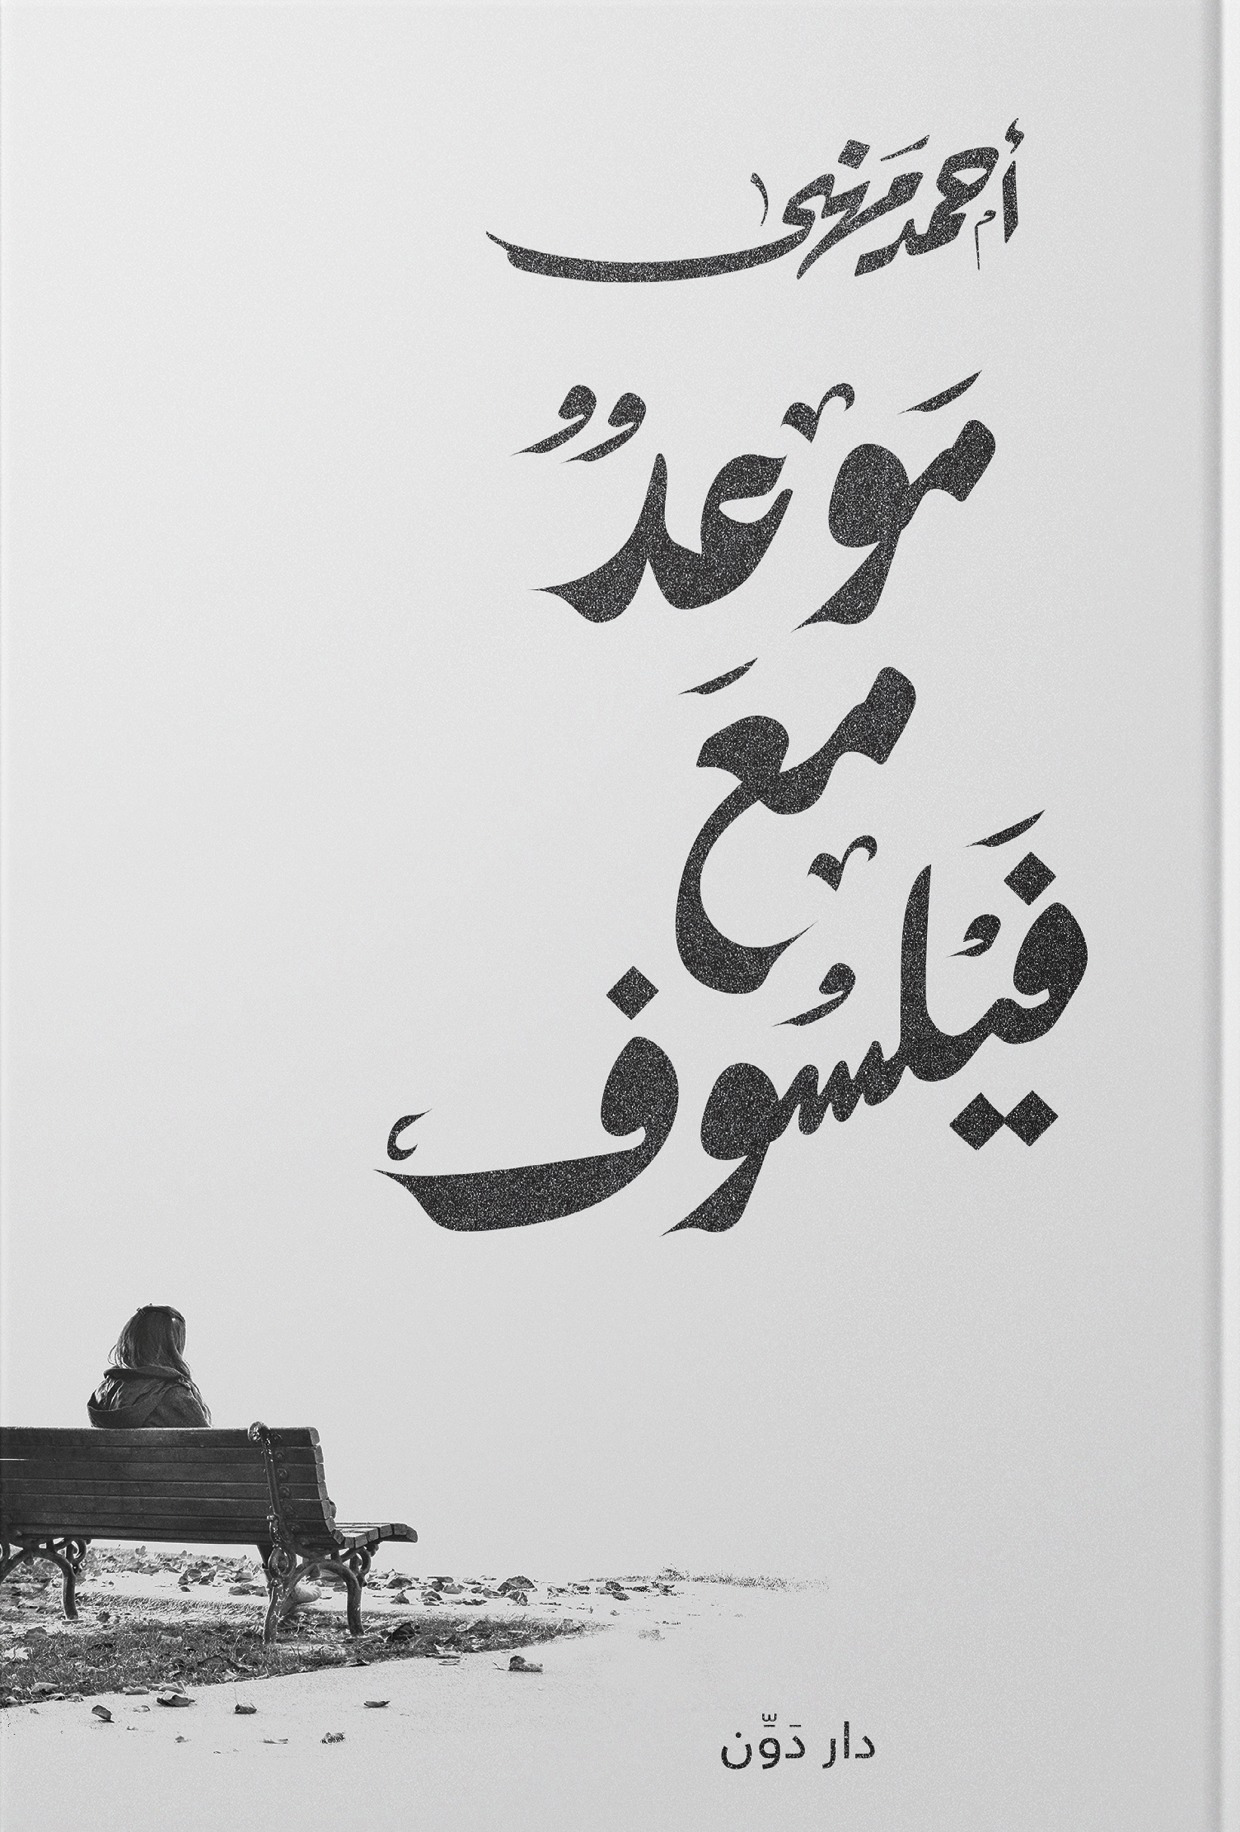 أحمد مَنهىٰ
مَوْعدٌ
معَ
فَيْلسُوف
دار دَوِّن